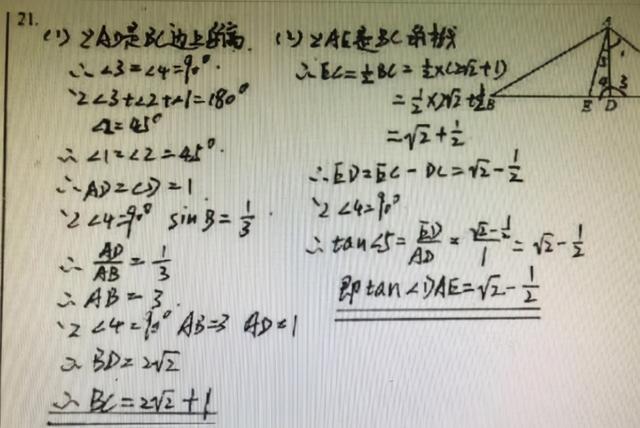 21.
(1) ∵AD是BC边上的高.
∴∠3=∠4=90°
∵∠3+∠2+∠1=180°
∠2=45°
∴∠1=∠2=45°.
∴AD=CD=1
∵∠4=90° sinB=1/3.
∴AD/AB=1/3
∴AB=3.
∵∠4=90° AB=3 AD=1
∴BD=2√2
∴BC=2√2+1
(2) ∵AE是BC中线
∴EC=1/2BC=1/2×(2√2+1)
=1/2×2√2+1/2
=√2+1/2
∴ED=EC-DC=√2-1/2
∵∠4=90°
∴tan∠5=ED/AD=(√2-1/2)/1=√2-1/2
即tan∠DAE=√2-1/2
A
5 1
4 3
B E D